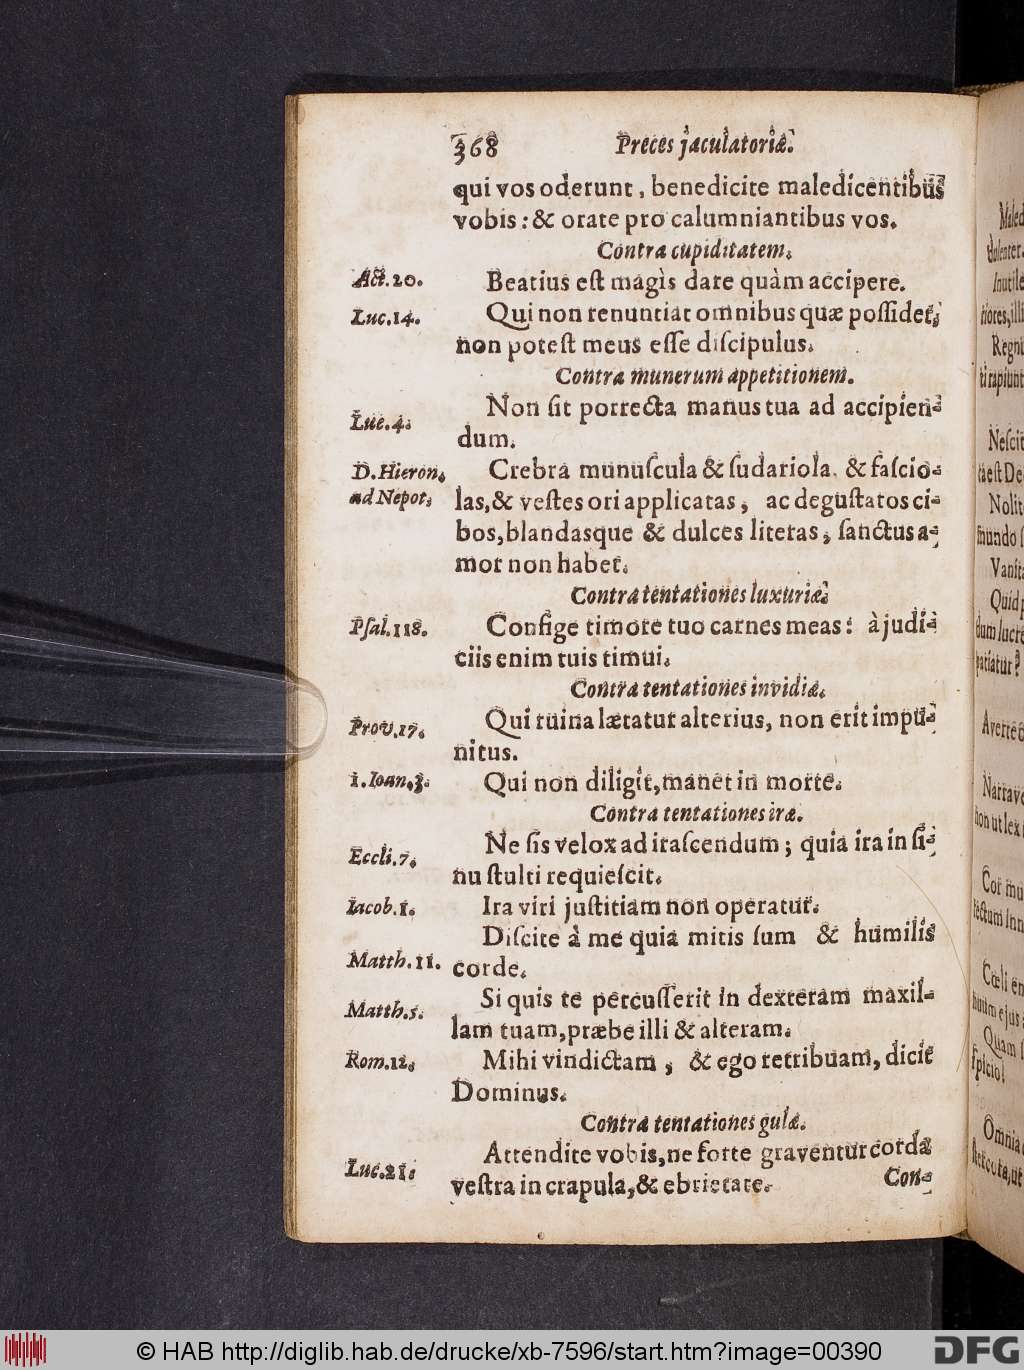 368 Preces jaculatoriæ.
qui vos oderunt, benedicite maledicentibus
vobis: & orate pro calumniantibus vos.
Contra cupiditatem.
Act. 20. Beatius eſt magìs dare quàm accipere.
Luc. 14. Qui non renuntiat omnibus quæ poſſidet,
non poteſt meus eſſe diſcipulus.
Contra munerum appetitionem.
Luc. 4. Non ſit porrecta manus tua ad accipien-
dum.
D. Hieron. Crebra munuſcula & ſudariola, & faſcio-
ad Nepot. las, & veſtes ori applicatas, ac deguſtatos ci-
bos, blandasque & dulces literas, ſanctus a-
mor non habet.
Contra tentationes luxuriæ.
Pſal. 118. Confige timore tuo carnes meas: à judi-
ciis enim tuis timui.
Contra tentationes invidiæ.
Prov. 17. Qui ruina lætatur alterius, non erit impu-
nitus.
1. Ioan. 3. Qui non diligit, manet in morte.
Contra tentationes iræ.
Eccli. 7. Ne ſis velox ad iraſcendum; quia ira in ſi-
nu ſtulti requieſcit.
Iacob. 1. Ira viri juſtitiam non operatur.
Diſcite à me quia mitis ſum & humilis
Matth. 11. corde.
Matth. 5. Si quis te percuſſerit in dexteram maxil-
lam tuam, præbe illi & alteram.
Rom. 12. Mihi vindictam, & ego retribuam, dicit
Dominus.
Contra tentationes gulæ.
Luc. 21. Attendite vobis, ne forte graventur corda
veſtra in crapula, & ebrietate. Con-
© HAB http://diglib.hab.de/drucke/xb-7596/start.htm?image=00390
DFG